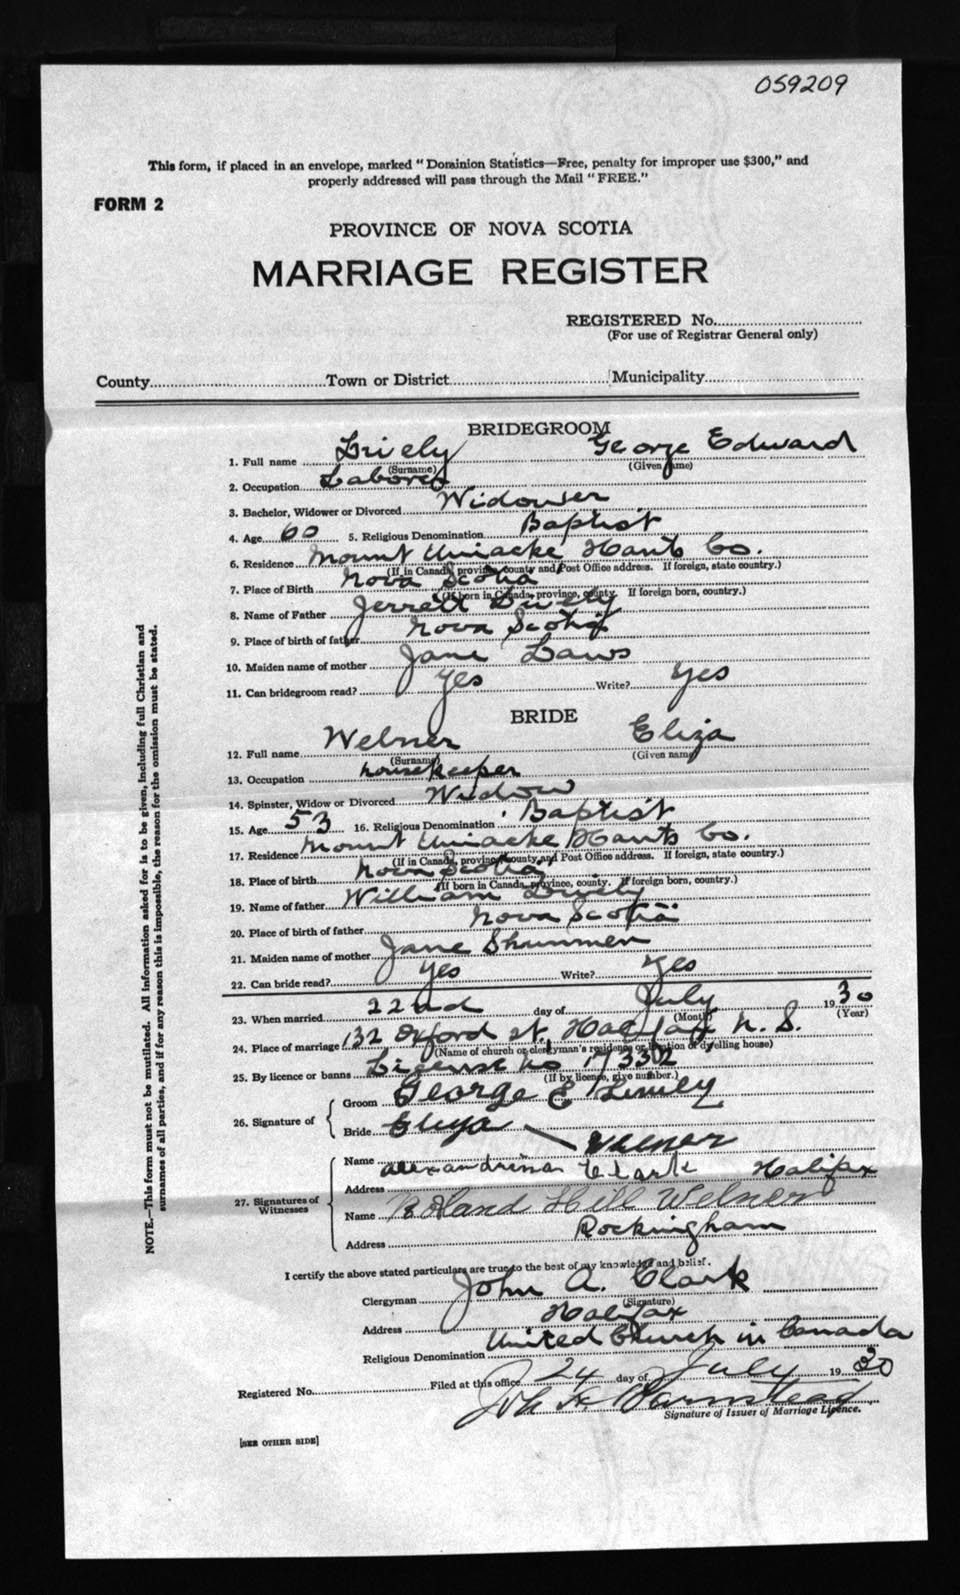 059209
This form, if placed in an envelope, marked "Dominion Statistics—Free, penalty for improper use $300," and
properly addressed will pass through the Mail "FREE."
FORM 2
PROVINCE OF NOVA SCOTIA
MARRIAGE REGISTER
REGISTERED No.
(For use of Registrar General only)
County Town or District Municipality
BRIDEGROOM
1. Full name Lively George Edward
(Surname) (Given name)
2. Occupation Laborer
3. Bachelor, Widower or Divorced Widower
4. Age 60 5. Religious Denomination Baptist
6. Residence Mount Uniacke Hants Co.
(If in Canada, province, county and Post Office address. If foreign, state country.)
7. Place of Birth Nova Scotia
(If born in Canada, province, county. If foreign born, country.)
8. Name of Father Jerrett Lively
9. Place of birth of father Nova Scotia
10. Maiden name of mother Jane Laws
11. Can bridegroom read? Yes Write? Yes
BRIDE
12. Full name Welner Eliza
(Surname) (Given name)
13. Occupation housekeeper
14. Spinster, Widow or Divorced Widow
15. Age 53 16. Religious Denomination Baptist
17. Residence Mount Uniacke Hants Co.
(If in Canada, province, county and Post Office address. If foreign, state country.)
18. Place of birth Nova Scotia
(If born in Canada, province, county. If foreign born, country.)
19. Name of father William Lively
20. Place of birth of father Nova Scotia
21. Maiden name of mother Jane
22. Can bride read? Yes Write? Yes
23. When married 22nd day of July 1930
(Month) (Year)
24. Place of marriage 132 Oxford St. Halifax N. S.
(Name of church or clergyman's residence or location of dwelling house)
25. By licence or banns License No 17332
(If by licence, give number.)
26. Signature of
Groom George E Lively
Bride Eliza Welner
27. Signatures of Witnesses
Name Alexandrina Clark Halifax
Address
Name Roland Hill Welner
Address Rockingham
I certify the above stated particulars are true to the best of my knowledge and belief.
Clergyman John A. Clark
(Signature)
Address Halifax
Religious Denomination United Church in Canada
Registered No. Filed at this office 24 day of July 1930
Barnstead
Signature of Issuer of Marriage Licence.
[SEE OTHER SIDE]
NOTE.—This form must not be mutilated. All information asked for is to be given, including full Christian and
surnames of all parties, and if for any reason this is impossible, the reason for the omission must be stated.